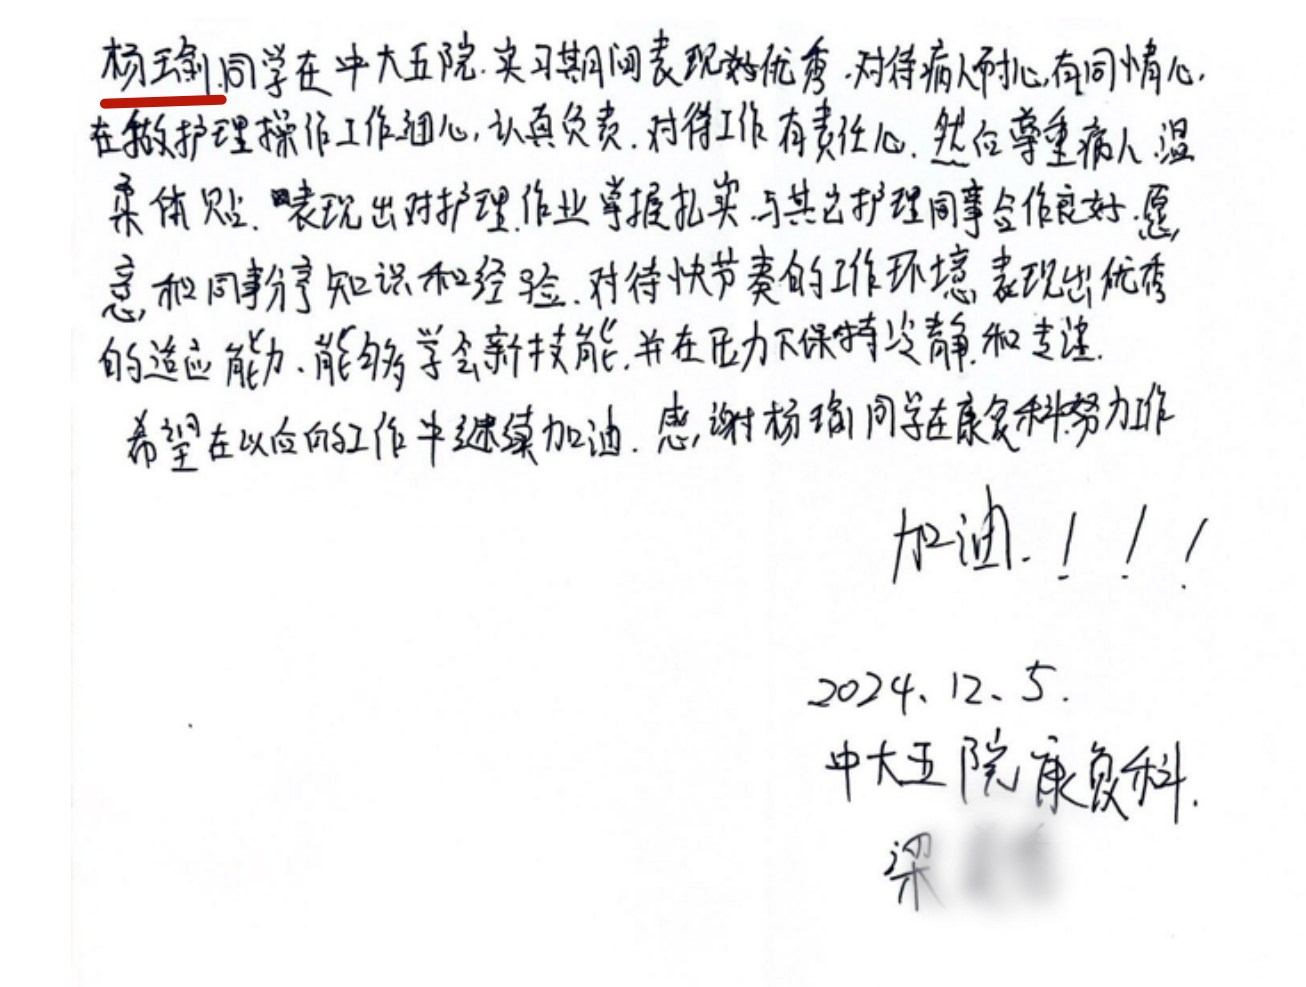 杨瑜同学在中大五院.实习期间表现较优秀.对待病人耐心,有同情心.
在做护理操作工作细心,认真负责.对待工作有责任心. 尊重病人.温
柔体贴.表现出对护理.作业掌握扎实.与其它护理同事合作良好.愿
意,和同事分享知识和经验.对待快节奏的工作环境,表现出优秀
的适应能力、能够学会新技能.并在压力下保持冷静.和专注.
希望在以后的工作中继续加油.感谢杨瑜同学在康复科努力工作
加油.！！！
2024、12、5.
中大五院康复科.
梁